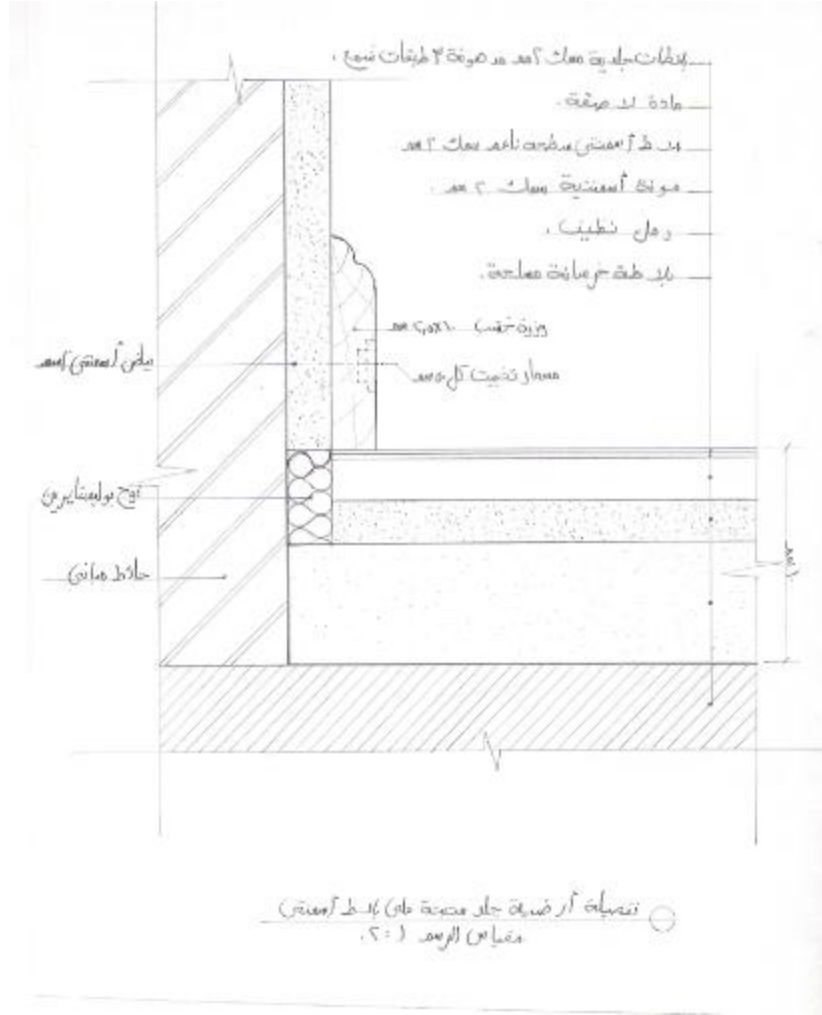 بلاطات جلدية سمك ٢مم مدهونة ٣ طبقات شمع .
مادة لاصقة .
بلاط أسمنتى سطحه ناعم سمك ٢سم
مونة أسمنتية سمك ٢ سم .
رمل نظيف .
بلاطة خرسانة مسلحة .
وزرة خشب
مسمار تثبيت كل
بياض أسمنتى ٢سم
لوح بوليستايرين
حائط مبانى
١٠سم
تفصيلة أرضية جلد على بلاط أسمنتى
مقياس الرسم ١ : ٢ .